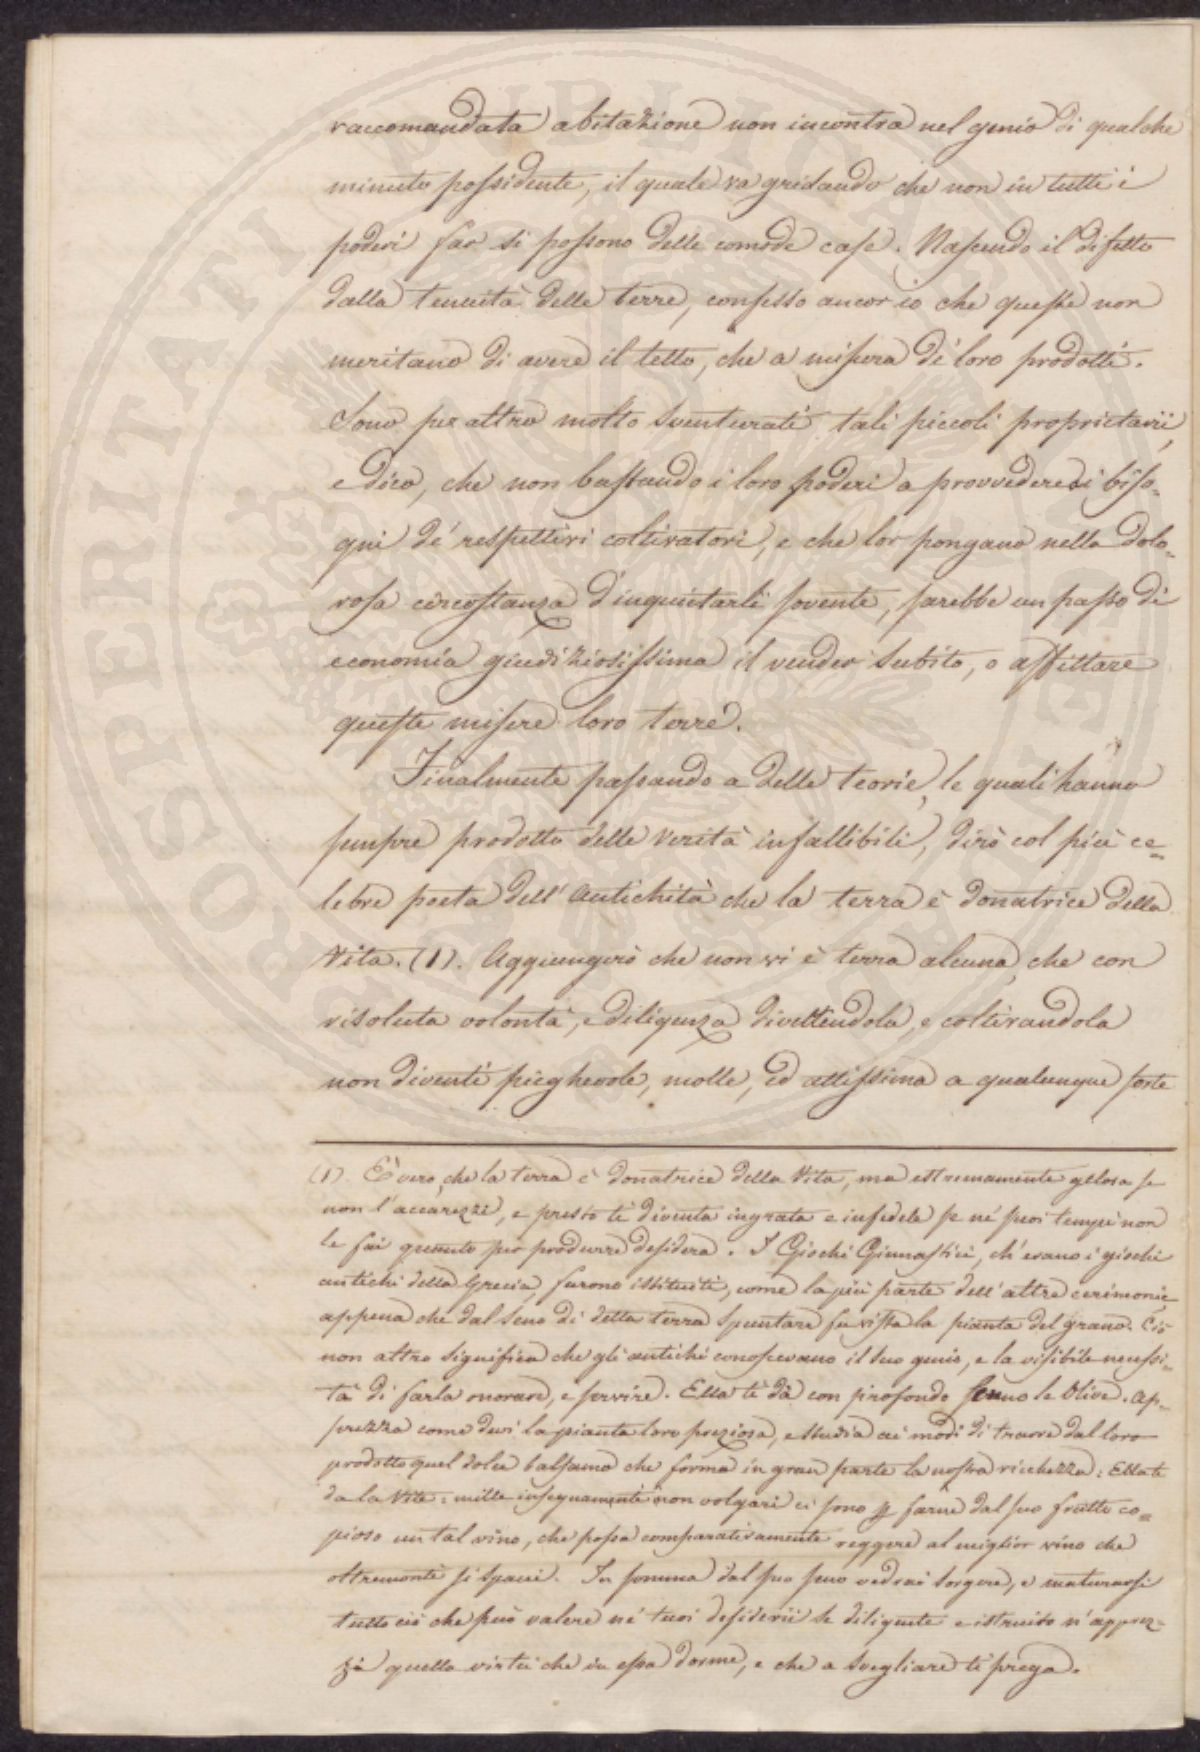 raccomandata abitazione non incontra nel genio di qualche
minuto possidente, il quale va gridando che non in tutti i
poderi far si possono delle comode case. Nascendo il difetto
dalla tenuità delle terre, confesso ancor io che queste non
meritano di avere il tetto, che a misura de' loro prodotti.
Sono per altro molto sventurati tali piccoli proprietarii,
e dico, che non bastando i loro poderi a provvedere ai biso-
gni de' respettivi coltivatori, e che lor pongano nella dolo-
rosa circostanza d'inquietarli sovente, sarebbe un passo di
economia giudiziosissima il vender subito, o affittare
queste misere loro terre.
Finalmente passando a delle teorie, le quali hanno
sempre prodotto delle verità infallibili, dirò col più ce-
lebre poeta dell'antichità che la terra è donatrice della
Vita. (1). Aggiungerò che non vi è terra alcuna, che con
risoluta volontà, e diligenza divettendola, e coltivandola
non diventi pieghevole, molle, ed attissima a qualunque sorte
(1). È vero, che la terra è donatrice della Vita, ma estremamente gelosa se
non l'accarezzi, e presto te diventa ingrata e infedele se ne' suoi tempi non
le fai quanto per produrre desidera. I Giochi Ginnastici, ch'erano i giochi
antichi della Grecia, furono istituiti, come la più parte dell'altre cerimonie
appena che dal seno di detta terra spuntare fu vista la pianta del grano. Ciò
non altro significa che gli antichi conoscevano il suo genio, e la visibile necessi-
tà di farla onorare, e servire. Ella te dà con profondo senno le Olive. Ap-
prezza come devi la pianta loro preziosa, e studia ai modi di trarre dal loro
prodotto quel dolce balsamo che forma in gran parte la nostra ricchezza: Ella te
da la Vite: mille insegnamenti non volgari ci sono p farne dal suo frutto co-
pioso un tal vino, che possa comparativamente reggere al miglior vino che
oltremonte si spacci. In somma dal suo seno vedrai sorgere, e maturarsi
tutto ciò che può valere ne' tuoi desiderii se diligente e istruito n'apprez-
zi quella virtù che in essa dorme, e che a svegliare te prega.
PROSPERITATI PUBLICAE